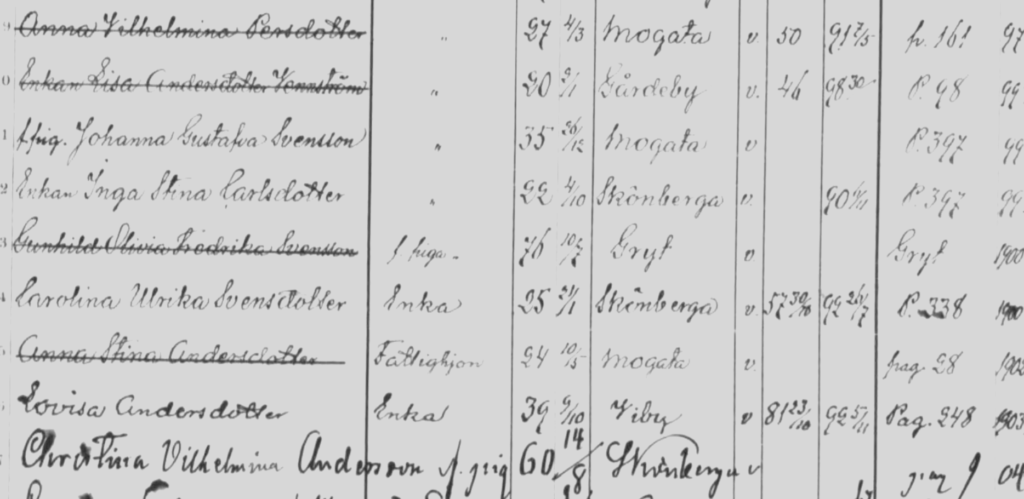 Anna Vilhelmina Persdotter " 27 4/3 Mogata v. 50 91 2/5 p. 161 97
Enkan Lisa Andersdotter Vennström " 20 2/1 Gårdeby v. 46 98 30 P. 98 99
f. pig. Johanna Gustafva Svensson " 35 26/12 Mogata v P. 397 99
Enkan Inga Stina Carlsdotter " 22 4/10 Skönberga v. P. 397 99
Gunhild Olivia Fredrika Svensson f. piga 76 10/7 Gryt v Gryt 1900
Carolina Ulrika Svensdotter Enka 25 21/1 Skönberga v. 57 30/10 P. 338 1900
Anna Stina Andersdotter Fattighjon 24 10/5 Mogata v. pag. 28 1902
Lovisa Andersdotter Enka 39 9/10 Viby v 81 23/10 Pag. 248 1903
Christina Vilhelmina Andersson f. pig 60 14/8 Skönberga v 04